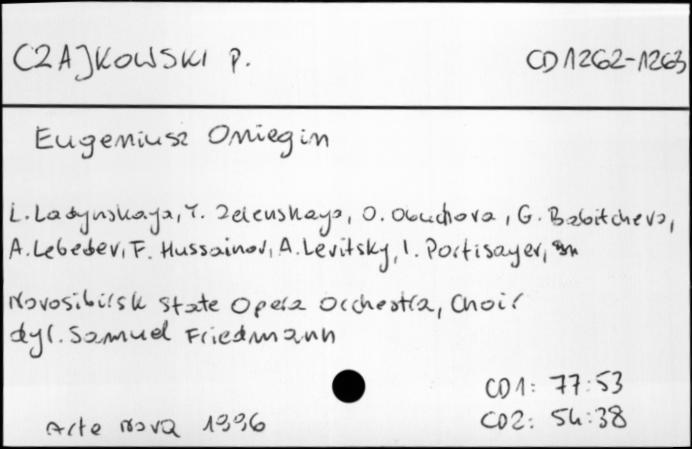 CZAJKOWSKI P.
CD 1262-1263
Eugeniusz Oniegin
L. Ladynskaya, T. Zelenskaya, O. Obuchova, G. Babitcheva,
A. Lebedev, F. Hussainov, A. Levitsky, I. Portisayev,
Novosibirsk State Opera Orchestra, Choir
dyr. Samuel Friedmann
CD1: 77:53
Arte Nova 1996
CD2: 54:38